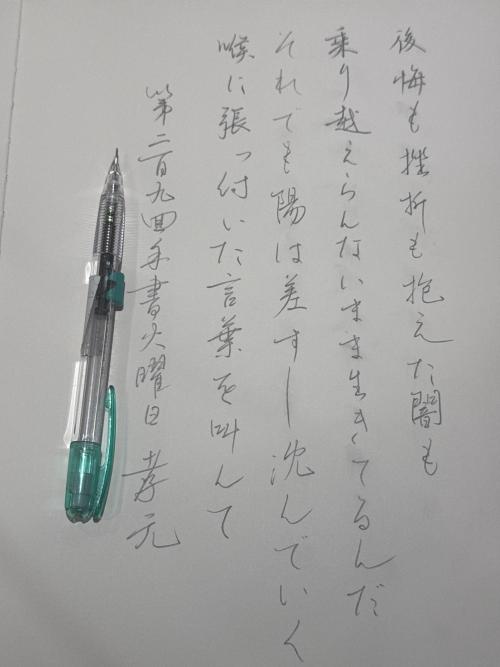 後悔も挫折も抱えた闇も
乗り越えらんないまま生きてるんだ
それでも陽は差すし沈んでいく
喉に張っ付いた言葉を叫んで
第二百九回手書火曜日 孝元